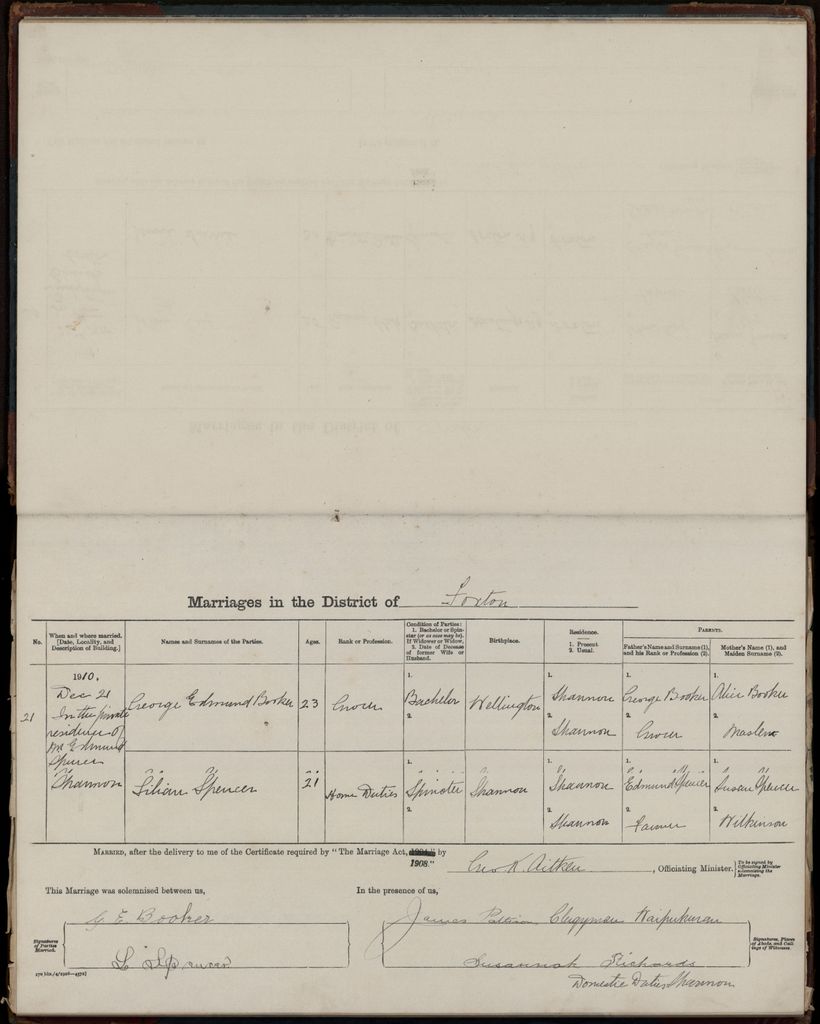 Marriages in the District of Foxton
No.
When and where married. [Date, Locality, and Description of Building.]
Names and Surnames of the Parties.
Ages.
Rank or Profession.
Condition of Parties: 1. Bachelor or Spinster (or as case may be). If Widower or Widow, 2. Date of Decease of former Wife or Husband.
Birthplace.
Residence. 1. Present. 2. Usual.
Parents.
Father's Name and Surname (1), and his Rank or Profession (2).
Mother's Name (1), and Maiden Surname (2).
21
1910.
Dec 21
In the private
residence of
Mr Edmund
Spencer
Shannon
George Edmund Booker
23
Grocer
1.
Bachelor
2.
Wellington
1.
Shannon
2.
Shannon
1.
George Booker
2.
Grocer
1.
Alice Booker
2.
Maslen
Lilian Spencer
21
Home Duties
1.
Spinster
2.
Shannon
1.
Shannon
2.
Shannon
1.
Edmund Spencer
2.
Farmer
1.
Susan Spencer
2.
Wilkinson
Married, after the delivery to me of the Certificate required by "The Marriage Act, 1908." by Geo K. Aitken, Officiating Minister. [To be signed by Officiating Minister solemnizing the Marriage.]
This Marriage was solemnised between us,
In the presence of us,
Signatures of Parties Married.
G E Booker
L Spencer
James Clergyman Waipukurau
Susannah Richards
Domestic Duties Shannon
Signatures, Places of Abode, and Callings of Witnesses